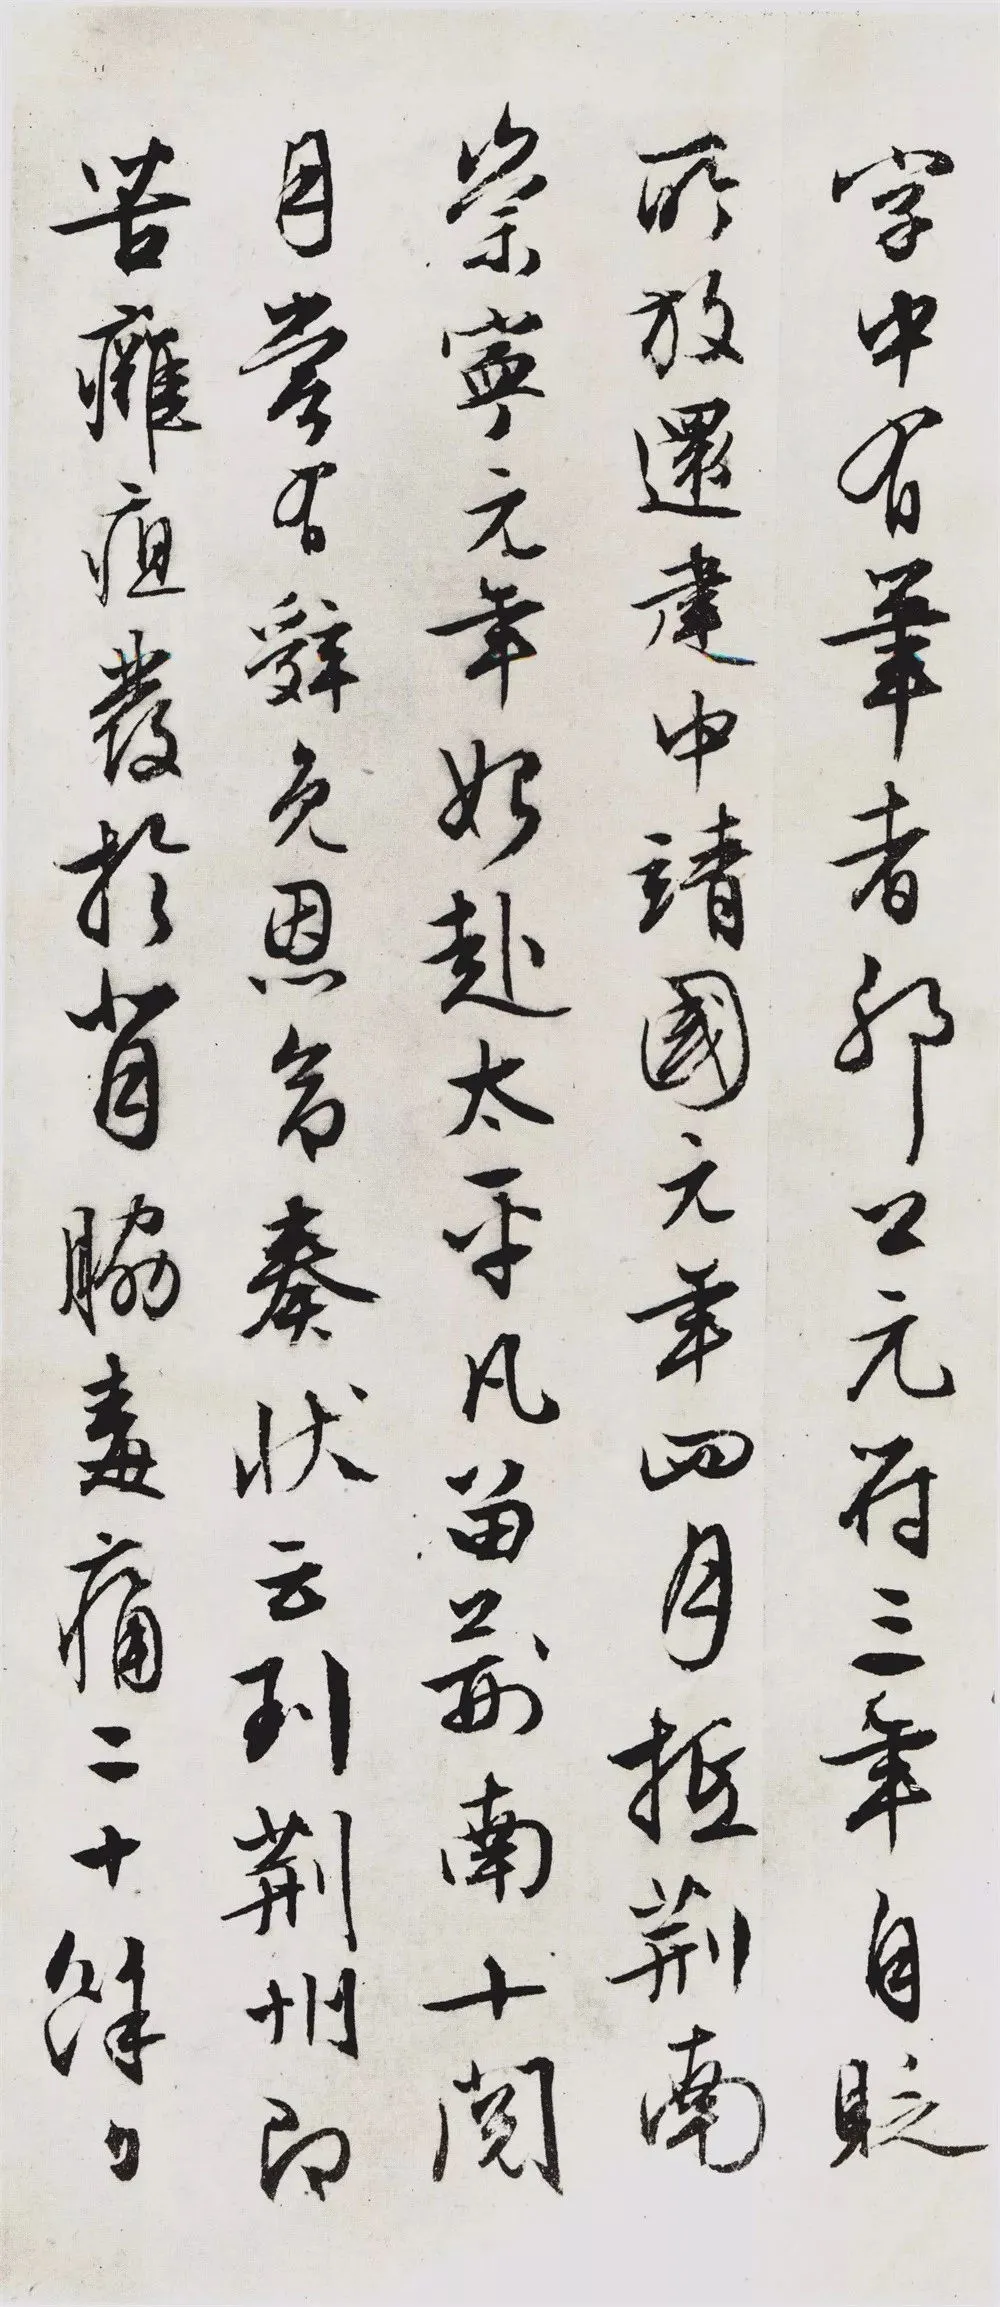 字中有筆者耶公元符三年自貶
所放還建中靖國元年四月抵荆南
崇寧元年始赴太平凡留荆南十閱
月嘗有辭免恩命奏状云到荆州即
苦癰疽發於背脇毒痛二十餘日